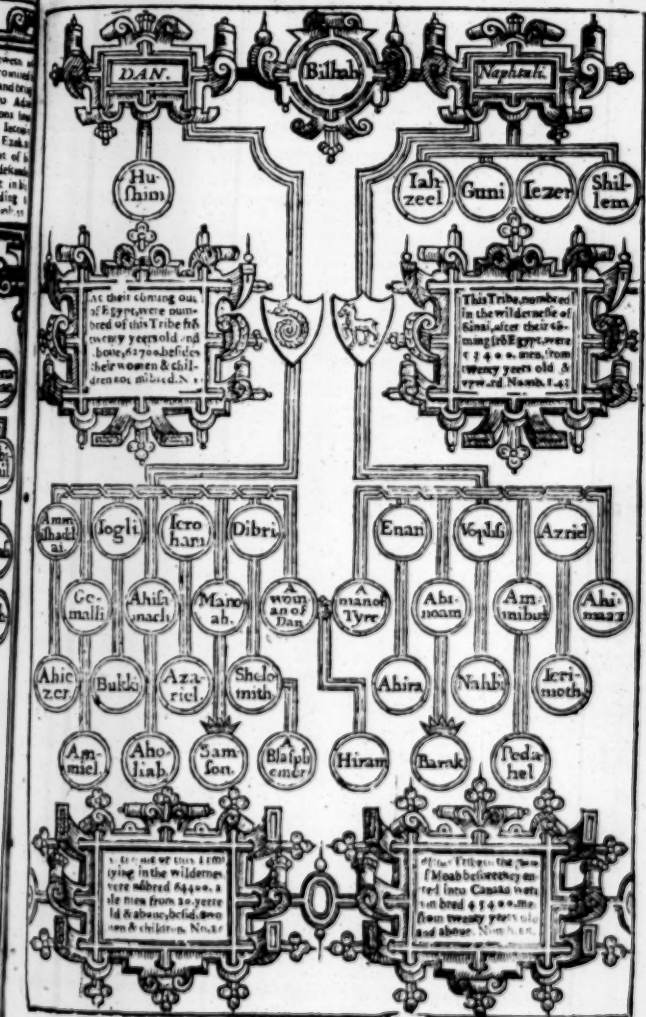 DAN.
Bilhah
Naphtali.
Hu-
shim
Iah-
zeel
Guni
Iezer
Shil-
lem
At their cōming out
of Egypt, were num-
bred of this Tribe frō
twenty yeers old and
aboue, 62700. besides
their women & chil-
dren not nūbred. N.
This Tribe, numbred
in the wildernesse of
Sinai, after their cō-
ming frō Egypt, were
53400. men, from
twenty yeers old &
vpward. Nomb. 1.43
Amm
ishadd
ai.
Iogli
Iero
ham
Dibri
Enan
Vophsi
Azriel
Ge-
malli
Ahisa
mach
Mano
ah.
A
wom
an of
Dan
A
man of
Tyre
Abi-
noam
Am-
mihud
Ahi-
maaz
Ahie
zer.
Bukki
Aza-
riel.
Shelo
mith.
Ahira
Nahbi
Ieri-
moth.
Am-
miel.
Aho-
liab.
Sam-
son.
A
Blasph
emer
Hiram
Barak
Peda-
hel
of this
lying in the wildernes
were nūbred 64400. a
ble men from 20. yeere
old & aboue, besid. wo
men & children. No. 26
Tribe in the
of Moab before they en-
tred into Canaan were
numbred 45400. me
from twenty yeers old
and aboue. Nomb.